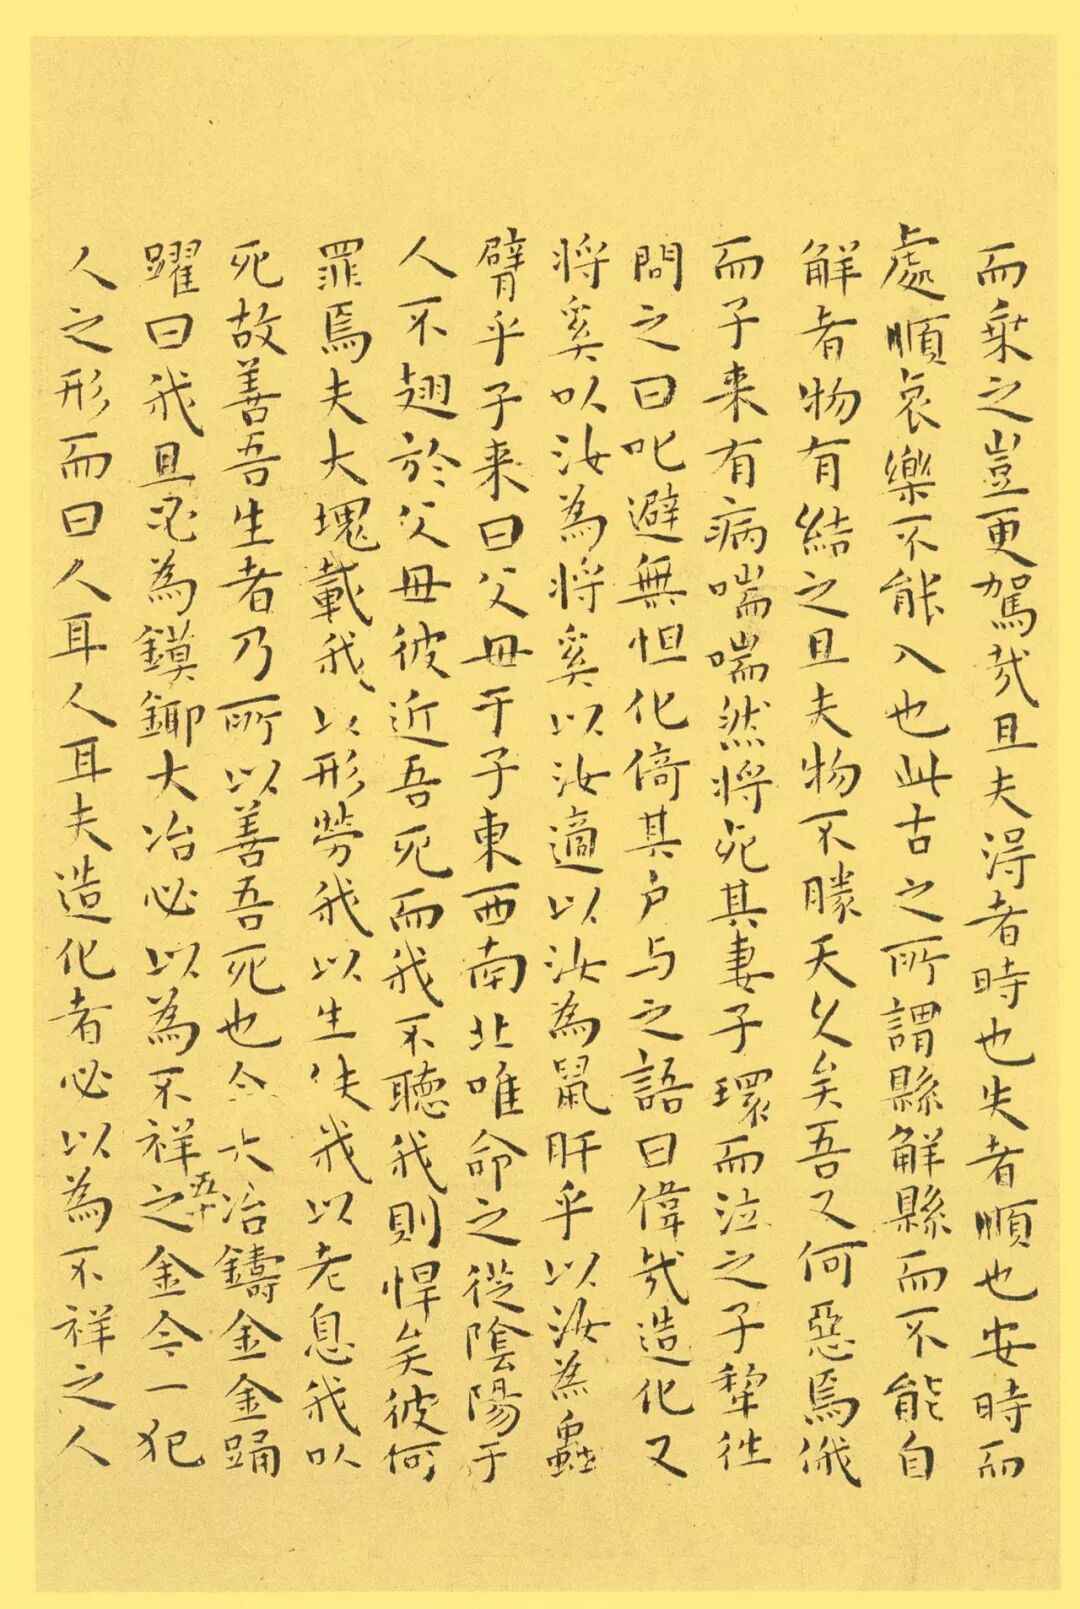 而乘之豈更駕哉且夫得者時也失者順也安時而
處順哀樂不能入也此古之所謂縣解縣而不能自
解者物有結之且夫物不勝天久矣吾又何惡焉俄
而子来有病喘喘然将死其妻子環而泣之子犂徃
問之曰叱避無怛化倚其户与之語曰偉哉造化又
将奚以汝為将奚以汝適以汝為鼠肝乎以汝為蟲
臂乎子来曰父母于子東西南北唯命之從陰陽于
人不翅於父母彼近吾死而我不聽我則悍矣彼何
罪焉夫大塊載我以形勞我以生佚我以老息我以
死故善吾生者乃所以善吾死也今大冶鑄金金踊
躍曰我且必為鏌鋣大冶必以為不祥之金今一犯
五十
人之形而曰人耳人耳夫造化者必以為不祥之人